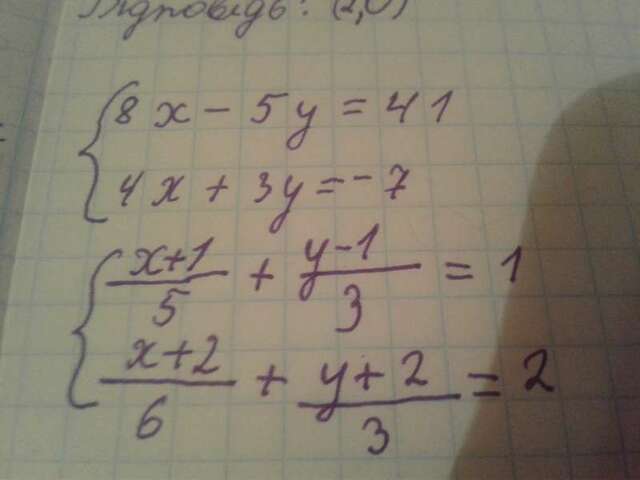 Відповідь: (2,0)
8x - 5y = 41
4x + 3y = -7
x+1/5 + y-1/3 = 1
x+2/6 + y+2/3 = 2